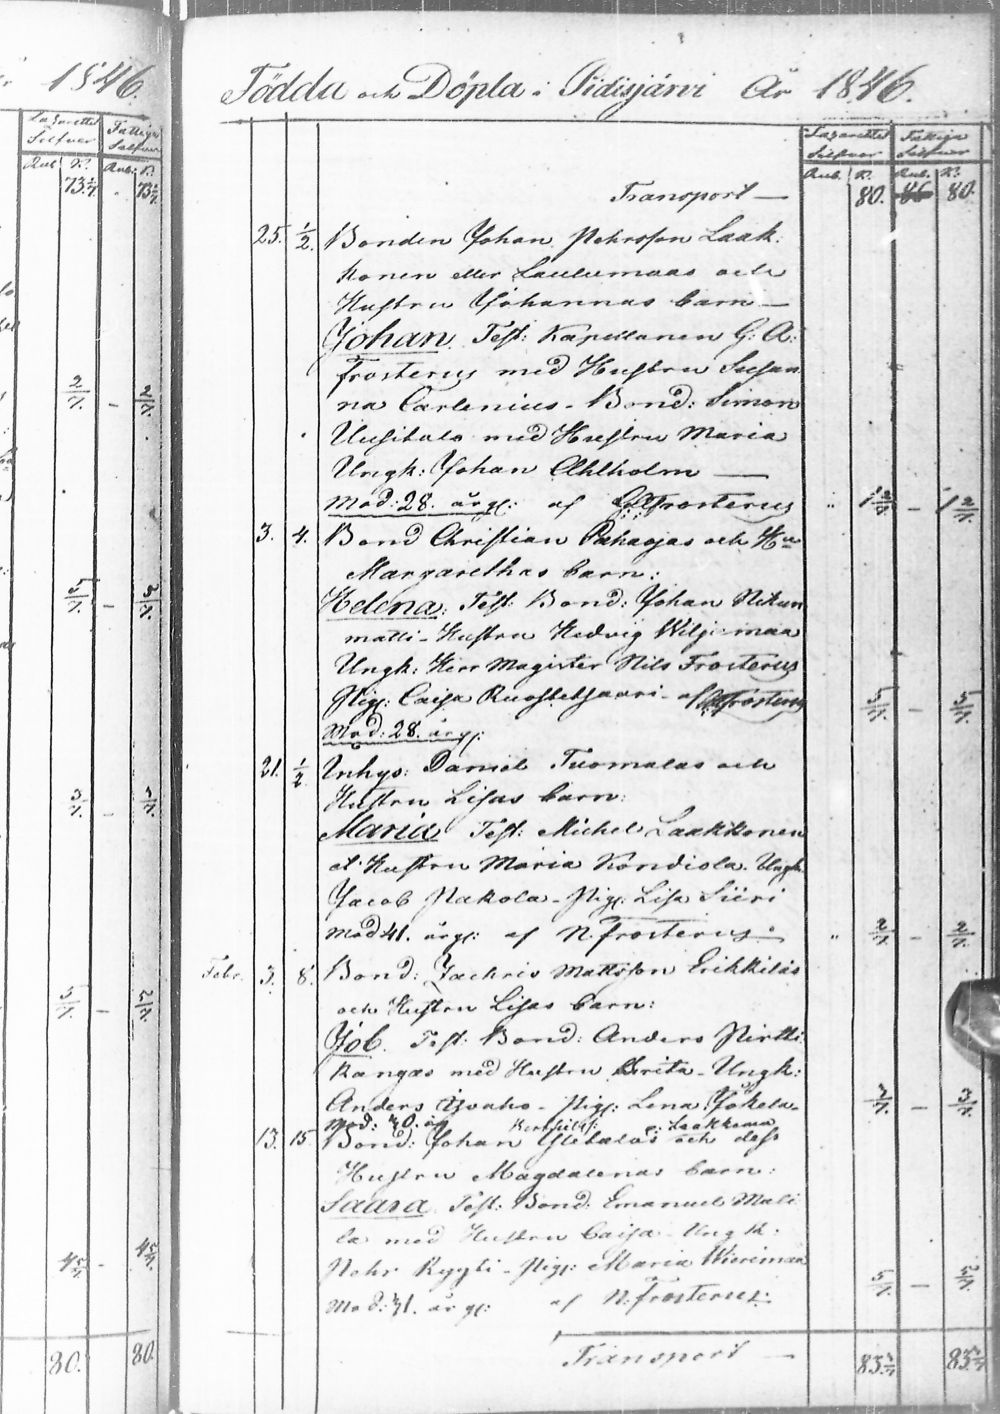 1846.
Lazarettet Silfver Fattiga Silfver
Rub. K. Rub. K.
73 1/7. 73 1/7.
2/7. – 2/7.
5/7. –
3/7.
5/7. –
4 5/7. – 4 5/7.
80. 80.
Födda och Döpta i Pidisjärvi År 1846.
Lazarettet Silfver Fattiga Silfver
Rub. K. Rub. K.
Transport — 80. 80.
25. 1/2. Bonden Johan Pehrsson Laak:
konen eller Laulumaas och
Hustru Johannas barn —
Johan. Test: Kapellanen G: A:
Frosterus med Hustru Susan
na Carlenius – Bond: Simon
Uusitalo med Hustru Maria
Ungk: Johan Ahlholm —
Mod: 28. årg: af GAFrosterus 1 2/7. – 1 2/7.
3. 4. Bond Christian Pahaojas och Hu
Margarethas barn:
Helena: Test: Bond: Johan Nikun
matti – Hustru Hedvig Wiljamaa
Ungk: Herr Magister Nils Frosterus
Pig: Caisa Ruostetsaari – af GAFrosterus 5/7. – 5/7.
Mod: 28. årg:
21. 1/2 Inhys: Daniel Tuomalas och
Hustru Lisas barn:
Maria Test: Michel Laakkonen
et Hustru Maria Kondiola. Ungk:
Jacob Pakola – Pig: Lisa Siiri
Mod 41. årg: af N. Frosterus: 2/7. – 2/7.
Febr. 3. 8. Bond: Zachris Mattsson Erikkiläs
och Hustru Lisas barn:
Job. Test. Bond: Anders Pirtti
kangas med Hustru Brita – Ungk:
Anders Ahvaho – Pig: Lena Jokela – 3/7. – 3/7.
Mod: 40. år N: Laakkema
13. 15. Bond: Johan Ylitalos och dess
Hustru Magdalenas barn:
Saara Test: Bond: Emanuel Mali
la med Hustru Caisa – Ungk:
Pehr Ryyti – Pig: Maria Wierimaa
Mod: 41. årg: af N. Frosterus: 5/7. – 5/7.
Transport — 83 3/7. 83 3/7.